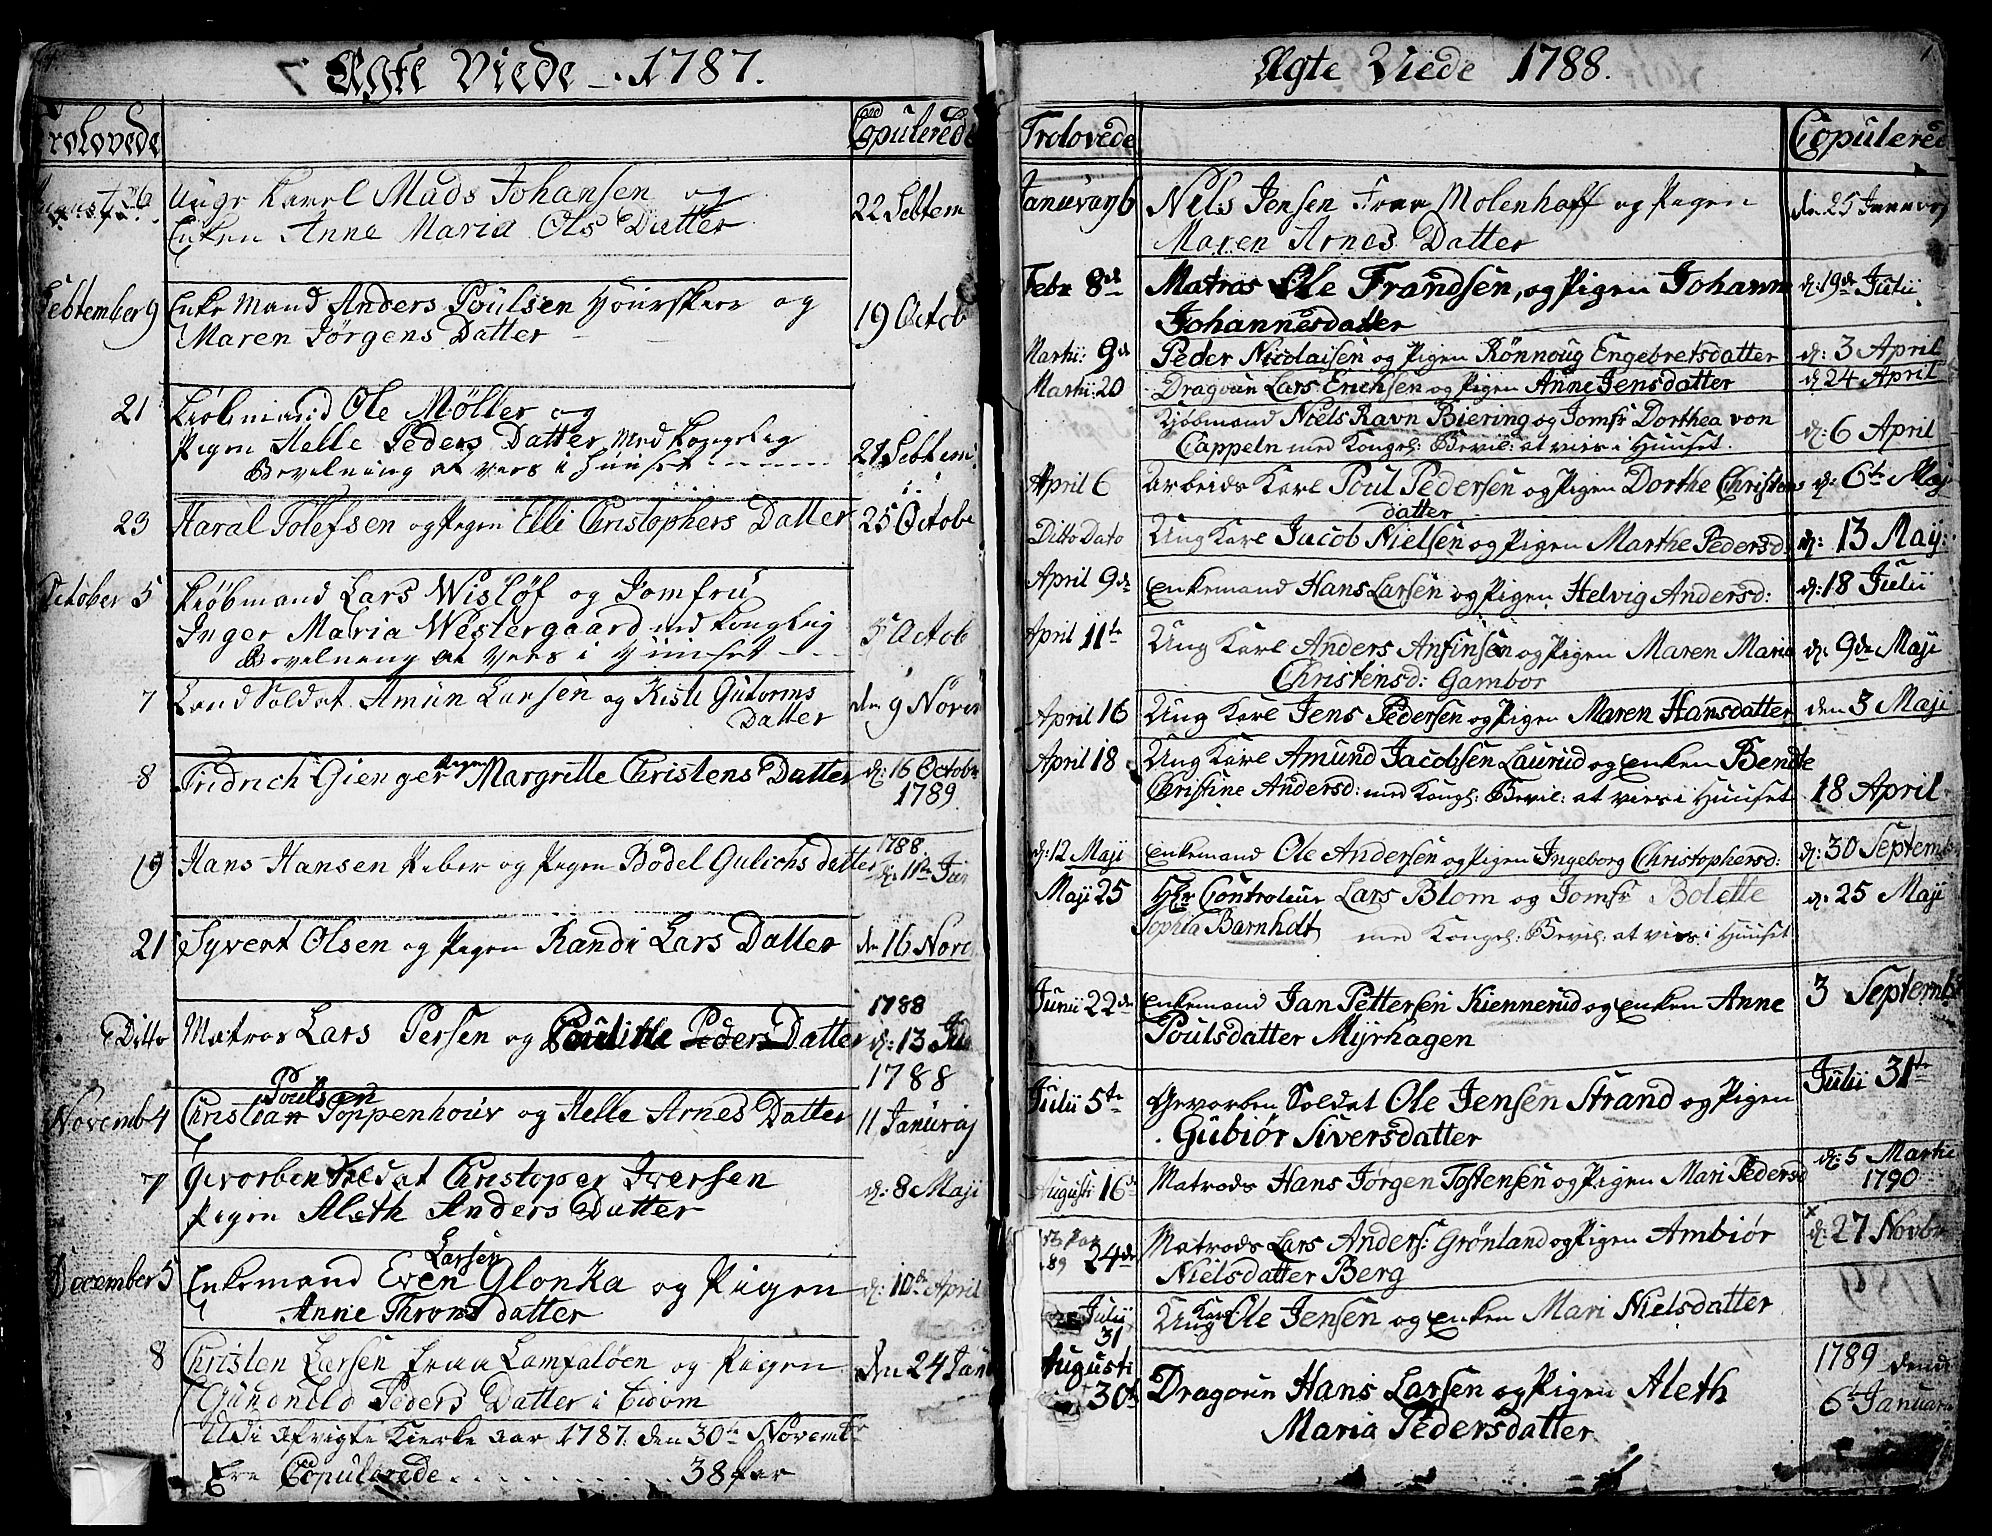 Ægte Viede 1787.
Trolovede Copulerede
August 26 Unge Karl Mads Johansen og 22 Sebtem
Enken Anne Maria Ols Datter
Sebtember 9 Enke Mand Anders Poulsen og 19 Octob
Maren Jörgens Datter
21 Kiöbmand Ole Möller og
Pigen Helle Peders Datter med Kongelig 21 Sebtem
Bevilning at vies i Huuset
23 Haral Tolefsen og Pigen Elli Christophers Datter 25 Octobe
October 5 Kiöbmand Lars Wislöf og Jomfru
Inger Maria Westergaard med Konglig 5 Octob
Bevilning at Vies i Huuset
7 Land Soldat Amun Larsen og Kisti Gutorms den 9 Novem
Datter
8 Fridrich Gienger Pigen Margritte Christens Datter d: 16 Octobr
1789
19 Hans Hansen Piber og Pigen Bodel Gulichs datter 1788. d: 11te Jan
21 Syvert Olsen og Pigen Randi Lars Datter den 16 Nov
Ditto Matros Lars Persen og Peders Datter 1788 d: 13 Jul
Poulsen 1788
Novemb 4 Christian Toppenhouv og Helle Arnes Datter 11 Januraj
7 Gevorben Soldat Christoper Iversen d: 8 Maji
Pigen Aleth Anders Datter
Larsen
December 5 Enkemand Even Glonka og Pigen d: 10de April
Anne Throns datter
8 Christen Larsen fraa Lamfaløen og Pigen den 24 Janu
Gundnild Peders Datter i Eidom
Udi afvigte Kierke aar 1787. den 30te Novembr
Ere Copulerede 38 Par
Ægte Viede 1788.
Trolovede Copulered
Januvary 6 Nels Jensen Fraa Molenhoff og Pigen den 25 Janvary
Maren Arnes Datter
Febr 8de Matros Ole Frandsen, og Pigen Johann d: 19de Julii
Johannesdatter
Martii: 9de Peder Nicolaisen og Pigen Rönnoug Engebretsdatter d: 3 April
Martii: 20 Dragoun Lars Erichsen og Pigen Anne Jensdatter d: 24 April
Kjøbmand Niels Ravn Biering og Jomfr Dorthea von d: 6 April
Cappeln med Kongel: Bevil: at vies i Huuset.
April 6 Arbeids Karl Poul Pedersen og Pigen Dorthe Christens d: 6te Maj
datter
Ditto Dato Ung Karl Jacob Nielsen og Pigen Marthe Pedersd: d: 13 Maij:
April 9de Enkemand Hans Larsen og Pigen Helvig Andersd: d: 18 Julii
April 11te Ung Karl Anders Ansinsen og Pigen Maren Maria d: 9de Maji
Christensd: Gambor
April 16 Ung Karl Jens Pedersen og Pigen Maren Hansdatter den 3 Maji
April 18 Ung Karl Amund Jacobsen Laurud og enken Bendte
Christine Andersd: med Kongl: Bevil: at vies i Huuset 18 April
d: 12 Maji Enkemand Ole Andersen og Pigen Ingeborg Christophersd: d: 30 Septemb
Maji 25 Hr Controleur Lars Blom og Jomfr Bolette d: 25 Maji
Sophia Barnholt med Kongel: Bevil: at vies i Huuset
Junii 22de Enkemand Jan Pettersen Kiennerud og enken Anne 3 Septemb
Poulsdatter Myrhagen
Julii 5te Gevorben Soldat Ole Jensen Strand og Pigen Julii 31te
Gubiør Siversdatter
Augusti 16de Matrods Hans Jørgen Tostensen og Pigen Mari Pedersd d: 5 Martii
1790
24de Matrods Lars Anders: Grönland og Pigen Ambiør x d: 27 Novbr
89 Nielsdatter Berg 1789
Julii 31 Ung Karl Ole Jensen og enken Mari Nielsdatter
Augusti 30te Dragoun Hans Larsen og Pigen Aleth 1789 den
Maria Pedersdatter 6te Januari